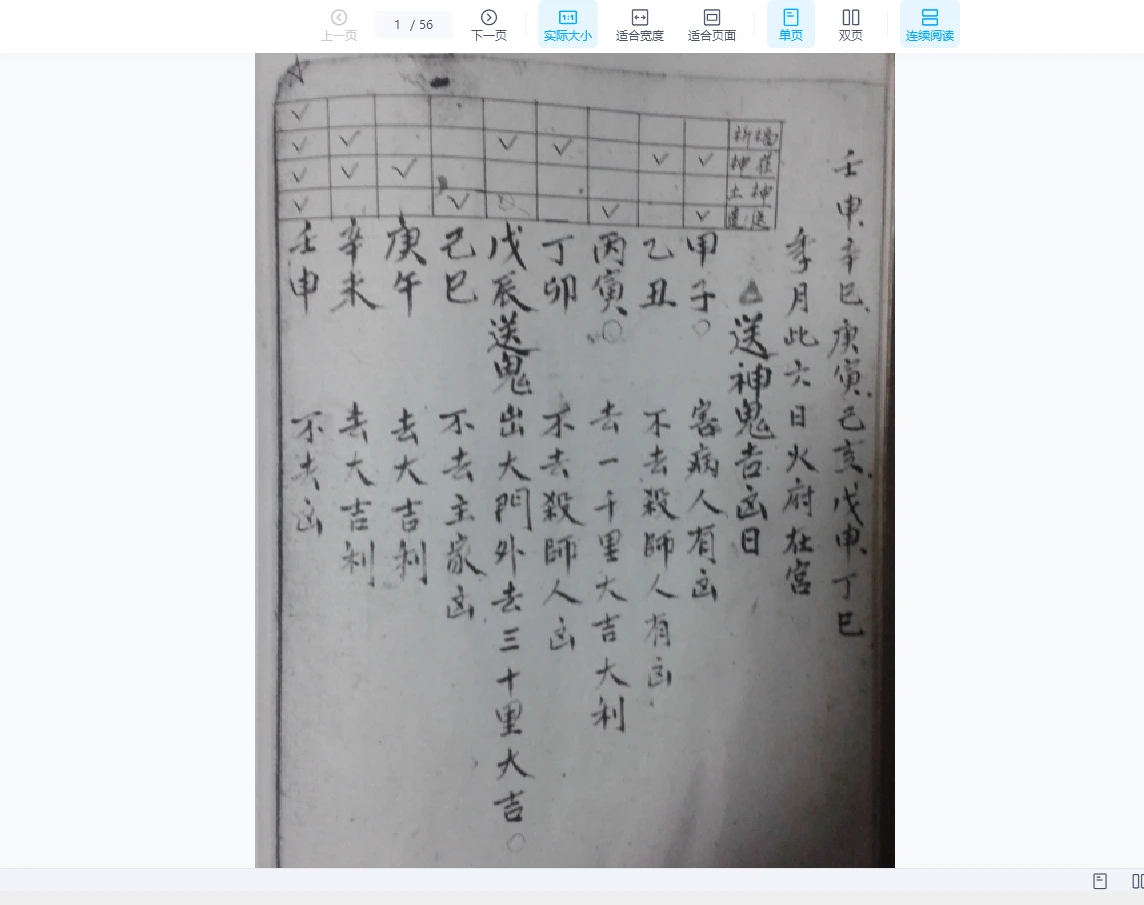 上一页
1 / 56
下一页
1:1
实际大小
适合宽度
适合页面
单页
双页
连续阅读
壬申辛巳庚寅己亥戊申丁巳
季月此六日火府在宮
△送神鬼吉凶日
祈福
神
土神
送
甲子○ 害病人有凶
乙丑 不去殺師人有凶
丙寅○ 去一千里大吉大利
丁卯 不去殺師人凶
戊辰送鬼出大門外去三十里大吉○
己巳 不去主家凶
庚午 去大吉利
辛未 去大吉利
壬申 不去凶